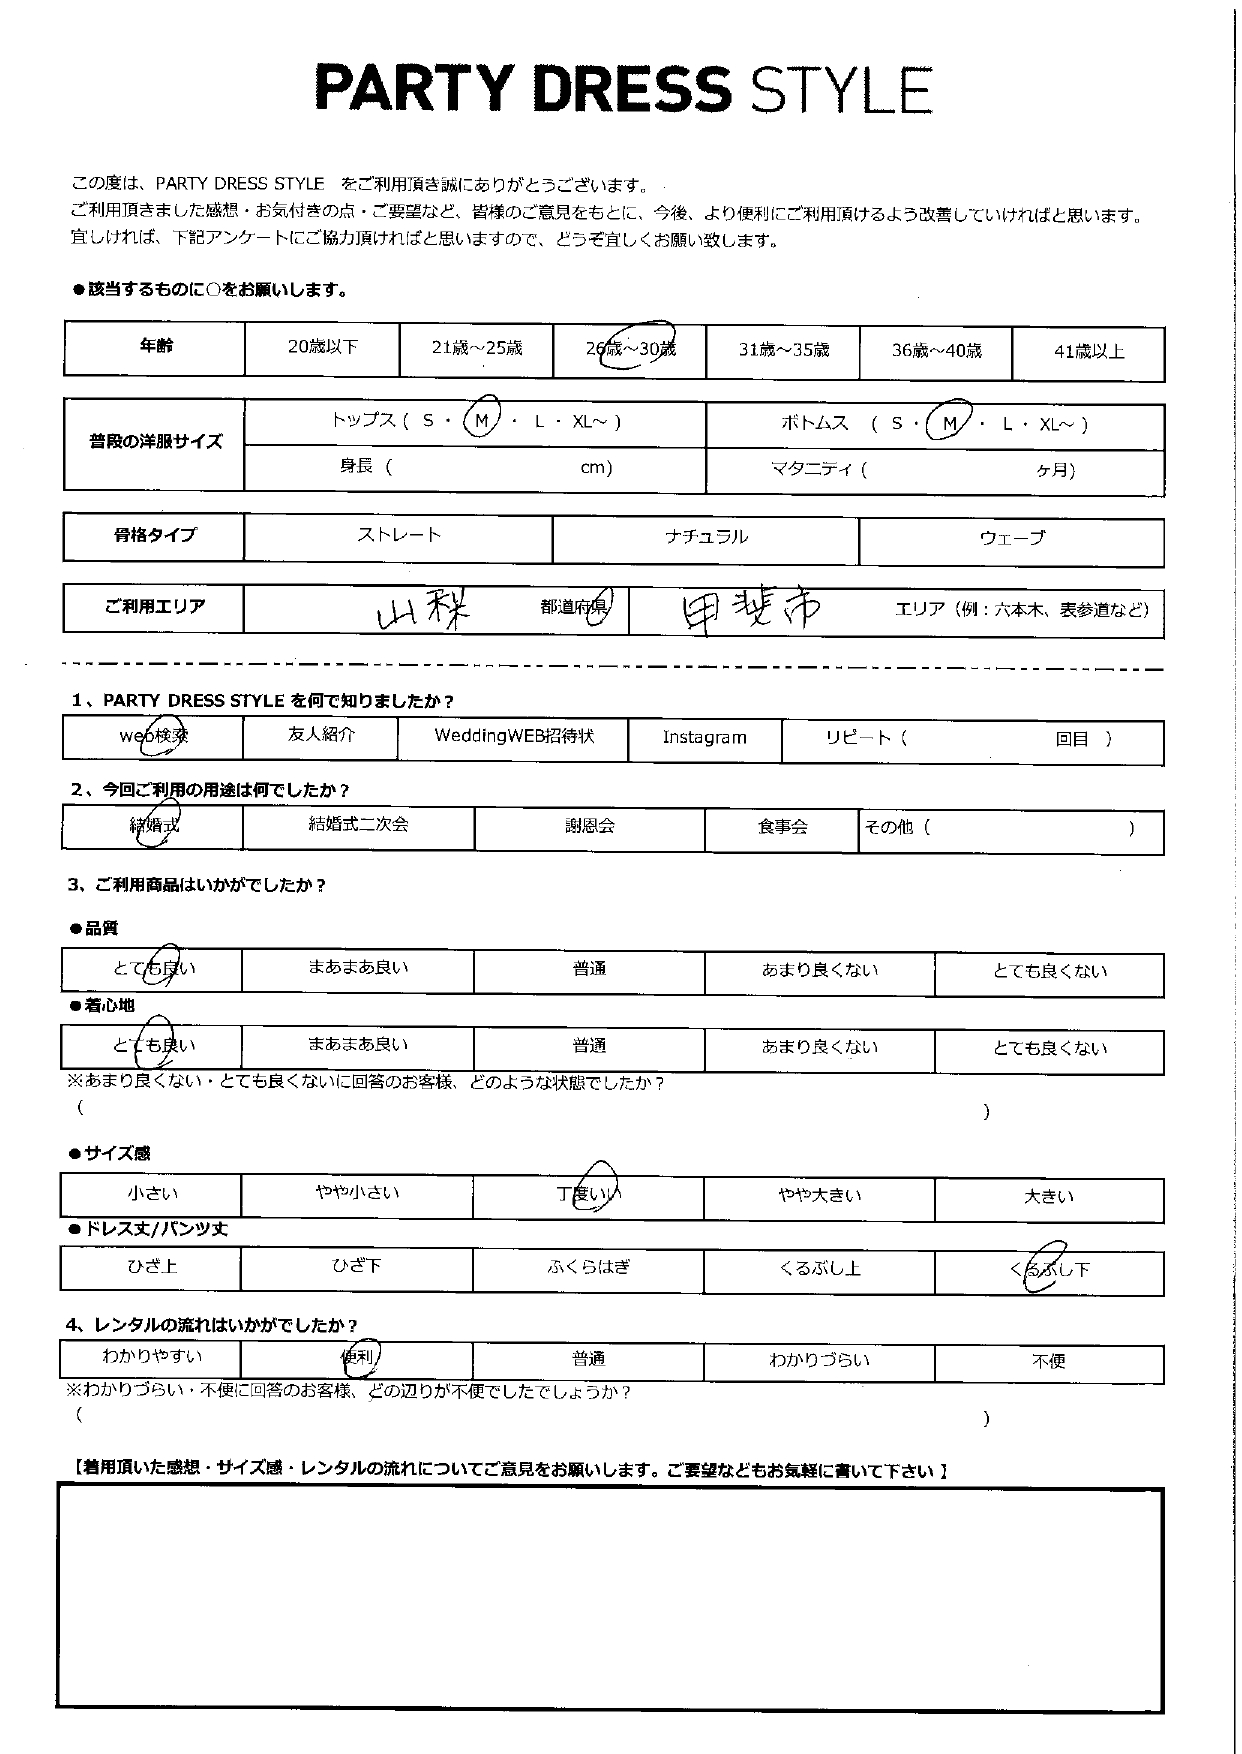 PARTY DRESS STYLE
この度は、PARTY DRESS STYLE をご利用頂き誠にありがとうございます。
ご利用頂きました感想・お気付きの点・ご要望など、皆様のご意見をもとに、今後、より便利にご利用頂けるよう改善していければと思います。
宜しければ、下記アンケートにご協力頂ければと思いますので、どうぞ宜しくお願い致します。
●該当するものに○をお願いします。
年齢 20歳以下 21歳～25歳 26歳～30歳 31歳～35歳 36歳～40歳 41歳以上
普段の洋服サイズ トップス ( S ・ M ・ L ・ XL～ ) ボトムス ( S ・ M ・ L ・ XL～ )
身長 ( cm) マタニティ ( ヶ月)
骨格タイプ ストレート ナチュラル ウェーブ
ご利用エリア 山梨 都道府県 甲斐市 エリア（例：六本木、表参道など）
1、PARTY DRESS STYLE を何で知りましたか？
web検索 友人紹介 WeddingWEB招待状 Instagram リピート ( 回目 )
2、今回ご利用の用途は何でしたか？
結婚式 結婚式二次会 謝恩会 食事会 その他 ( )
3、ご利用商品はいかがでしたか？
●品質
とても良い まあまあ良い 普通 あまり良くない とても良くない
●着心地
とても良い まあまあ良い 普通 あまり良くない とても良くない
※あまり良くない・とても良くないに回答のお客様、どのような状態でしたか？
( )
●サイズ感
小さい やや小さい 丁度いい やや大きい 大きい
●ドレス丈/パンツ丈
ひざ上 ひざ下 ふくらはぎ くるぶし上 くるぶし下
4、レンタルの流れはいかがでしたか？
わかりやすい 便利 普通 わかりづらい 不便
※わかりづらい・不便に回答のお客様、どの辺りが不便でしたでしょうか？
( )
【着用頂いた感想・サイズ感・レンタルの流れについてご意見をお願いします。ご要望などもお気軽に書いて下さい】